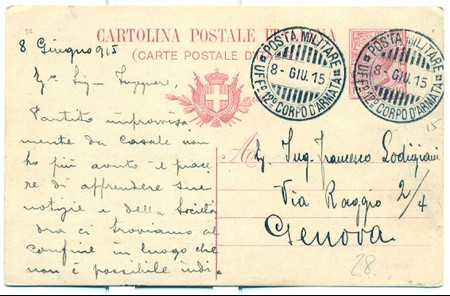 CARTOLINA POSTALE
(CARTE POSTALE D'
POSTA MILITARE
8 - GIU. 15
UFF° 12° CORPO D'ARMATA
POSTA MILITARE
8 - GIU. 15
UFF° 12° CORPO D'ARMATA
8 Giugno 915
Partito improvvisa
mente da Casale non
ho più avuto il piace
re di apprendere sue
notizie e della Società
Ora ci troviamo al
confine in luogo che
non è possibile indi
15
A
Ing. Francesco Lodigiani
Via Raggio 2/4
Genova
28.